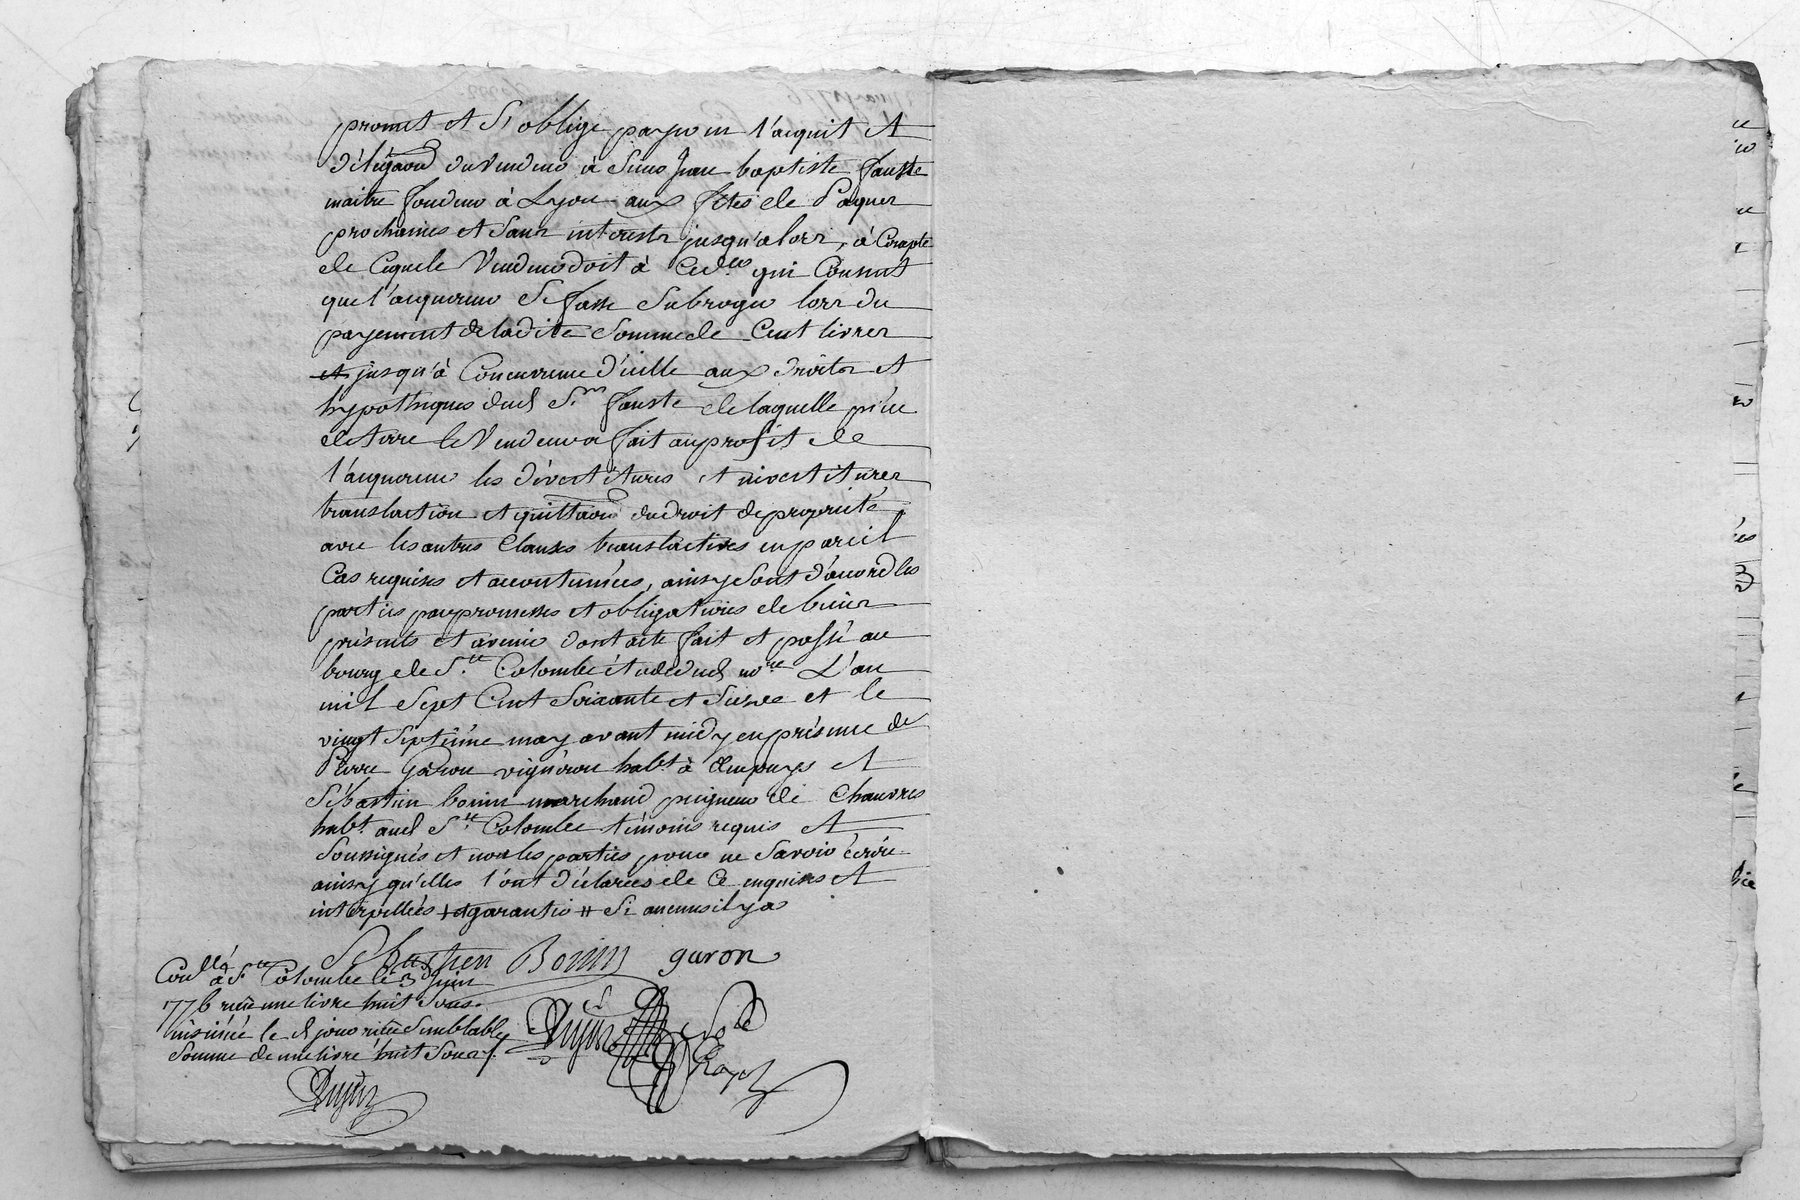 promet et s'oblige payer en l'acquit et
délégaõn du vendeur à sieur Jean baptiste fauste
maitre fondeur à Lyon aux fetes de Paques
prochaines et sans interests jusqu'alors, à Compte
de Ceque le Vendeur doit à Ced. qui Consent
que l'acquereur se fasse subroger lors du
payement de ladite somme de Cent livres
et jusqu'à Concurrence d'icelle aux droits et
hypotheques dud S.r fauste de laquelle pièce
de terre le Vendeur a fait au profit de
l'acquereur les dévestitures et investitures
translation et quittaõn du droit de propriété
avec les autres Clauses translatives en pareil
Cas requises et accoutumées, ainsy sont d'accord les
parties par promesses et obligatoires de biens
présents et avenir dont acte fait et passé au
bourg de S.te Colombe étude dud no.re L'an
mil Sept Cent Soixante et Seize et le
vingt Septième may avant midy en présence de
Pierre garon vigneron habt. à Ampuys et
Sébastien bonin marchand peigneur de Chanvres
habt. aud S.te Colombe témoins requis et
Soussignés et non les parties pour ne savoir écrire
ainsy qu'elles l'ont déclarées de Ce enquises et
interpellées + et garantie # Si aucuns il y a
Sebastien Bonin garon
Conllé à S.te Colombe le 3 Juin
1776 reçu une livre huit Sous
insinué le d jour reçu Semblable
Somme de une livre huit Sous